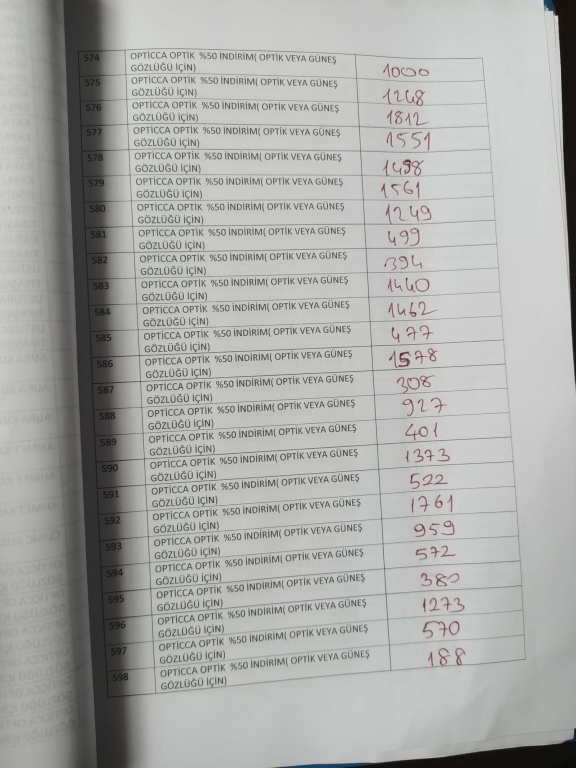 574 OPTİCCA OPTİK %50 İNDİRİM( OPTİK VEYA GÜNEŞ
GÖZLÜĞÜ İÇİN) 1000
575 OPTİCCA OPTİK %50 İNDİRİM( OPTİK VEYA GÜNEŞ
GÖZLÜĞÜ İÇİN) 1248
576 OPTİCCA OPTİK %50 İNDİRİM( OPTİK VEYA GÜNEŞ
GÖZLÜĞÜ İÇİN) 1812
577 OPTİCCA OPTİK %50 İNDİRİM( OPTİK VEYA GÜNEŞ
GÖZLÜĞÜ İÇİN) 1551
578 OPTİCCA OPTİK %50 İNDİRİM( OPTİK VEYA GÜNEŞ
GÖZLÜĞÜ İÇİN)
579 OPTİCCA OPTİK %50 İNDİRİM( OPTİK VEYA GÜNEŞ
GÖZLÜĞÜ İÇİN) 1561
580 OPTİCCA OPTİK %50 İNDİRİM( OPTİK VEYA GÜNEŞ
GÖZLÜĞÜ İÇİN) 1249
581 OPTİCCA OPTİK %50 İNDİRİM( OPTİK VEYA GÜNEŞ
GÖZLÜĞÜ İÇİN) 499
582 OPTİCCA OPTİK %50 İNDİRİM( OPTİK VEYA GÜNEŞ
GÖZLÜĞÜ İÇİN) 394
583 OPTİCCA OPTİK %50 İNDİRİM( OPTİK VEYA GÜNEŞ
GÖZLÜĞÜ İÇİN) 1440
584 OPTİCCA OPTİK %50 İNDİRİM( OPTİK VEYA GÜNEŞ
GÖZLÜĞÜ İÇİN) 1462
585 OPTİCCA OPTİK %50 İNDİRİM( OPTİK VEYA GÜNEŞ
GÖZLÜĞÜ İÇİN) 477
586 OPTİCCA OPTİK %50 İNDİRİM( OPTİK VEYA GÜNEŞ
GÖZLÜĞÜ İÇİN) 1578
587 OPTİCCA OPTİK %50 İNDİRİM( OPTİK VEYA GÜNEŞ
GÖZLÜĞÜ İÇİN) 308
588 OPTİCCA OPTİK %50 İNDİRİM( OPTİK VEYA GÜNEŞ
GÖZLÜĞÜ İÇİN) 927
589 OPTİCCA OPTİK %50 İNDİRİM( OPTİK VEYA GÜNEŞ
GÖZLÜĞÜ İÇİN) 401
590 OPTİCCA OPTİK %50 İNDİRİM( OPTİK VEYA GÜNEŞ
GÖZLÜĞÜ İÇİN) 1373
591 OPTİCCA OPTİK %50 İNDİRİM( OPTİK VEYA GÜNEŞ
GÖZLÜĞÜ İÇİN) 522
592 OPTİCCA OPTİK %50 İNDİRİM( OPTİK VEYA GÜNEŞ
GÖZLÜĞÜ İÇİN) 1761
593 OPTİCCA OPTİK %50 İNDİRİM( OPTİK VEYA GÜNEŞ
GÖZLÜĞÜ İÇİN) 959
594 OPTİCCA OPTİK %50 İNDİRİM( OPTİK VEYA GÜNEŞ
GÖZLÜĞÜ İÇİN) 572
595 OPTİCCA OPTİK %50 İNDİRİM( OPTİK VEYA GÜNEŞ
GÖZLÜĞÜ İÇİN) 380
596 OPTİCCA OPTİK %50 İNDİRİM( OPTİK VEYA GÜNEŞ
GÖZLÜĞÜ İÇİN) 1273
597 OPTİCCA OPTİK %50 İNDİRİM( OPTİK VEYA GÜNEŞ
GÖZLÜĞÜ İÇİN) 570
598 OPTİCCA OPTİK %50 İNDİRİM( OPTİK VEYA GÜNEŞ
GÖZLÜĞÜ İÇİN) 188